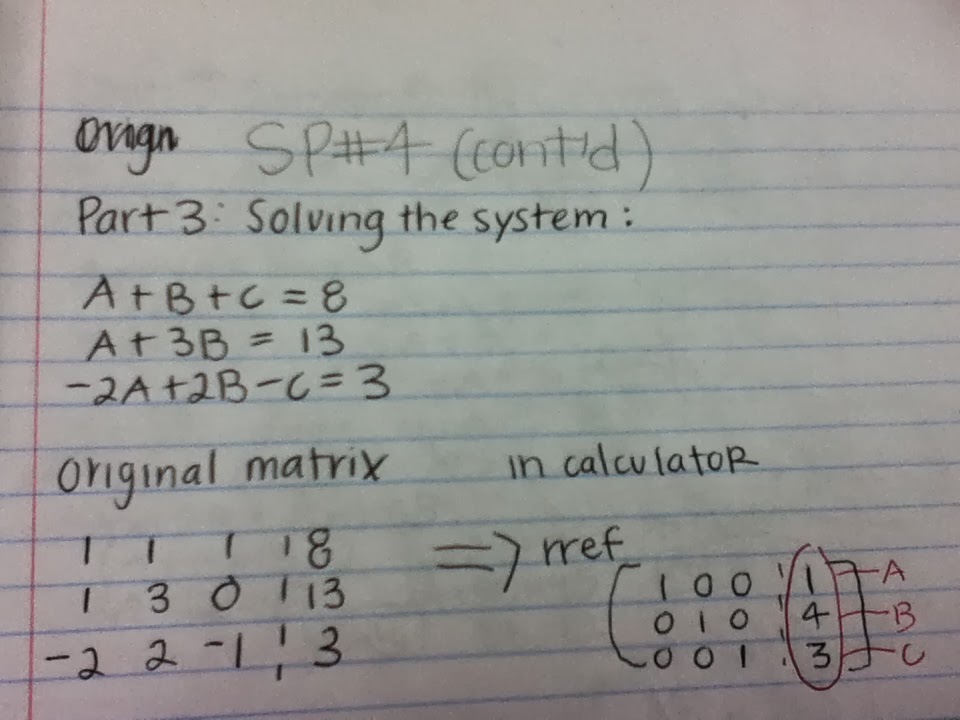 Orign SP#4 (cont'd)
Part 3: Solving the system:
A + B + C = 8
A + 3B = 13
-2A + 2B - C = 3
original matrix in calculator
1 1 1 ¦ 8 => rref
1 3 0 ¦ 13
-2 2 -1 ¦ 3
[1 0 0 ¦ 1] A
0 1 0 ¦ 4 B
0 0 1 ¦ 3 C